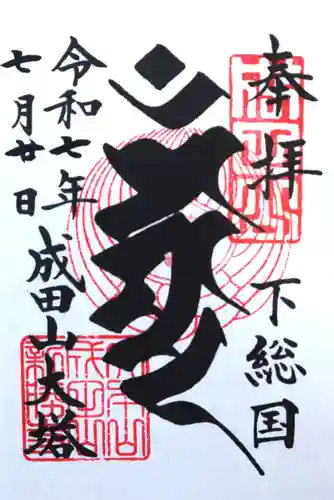 奉拝
下総国
成田山大塔
令和七年
七月廿日